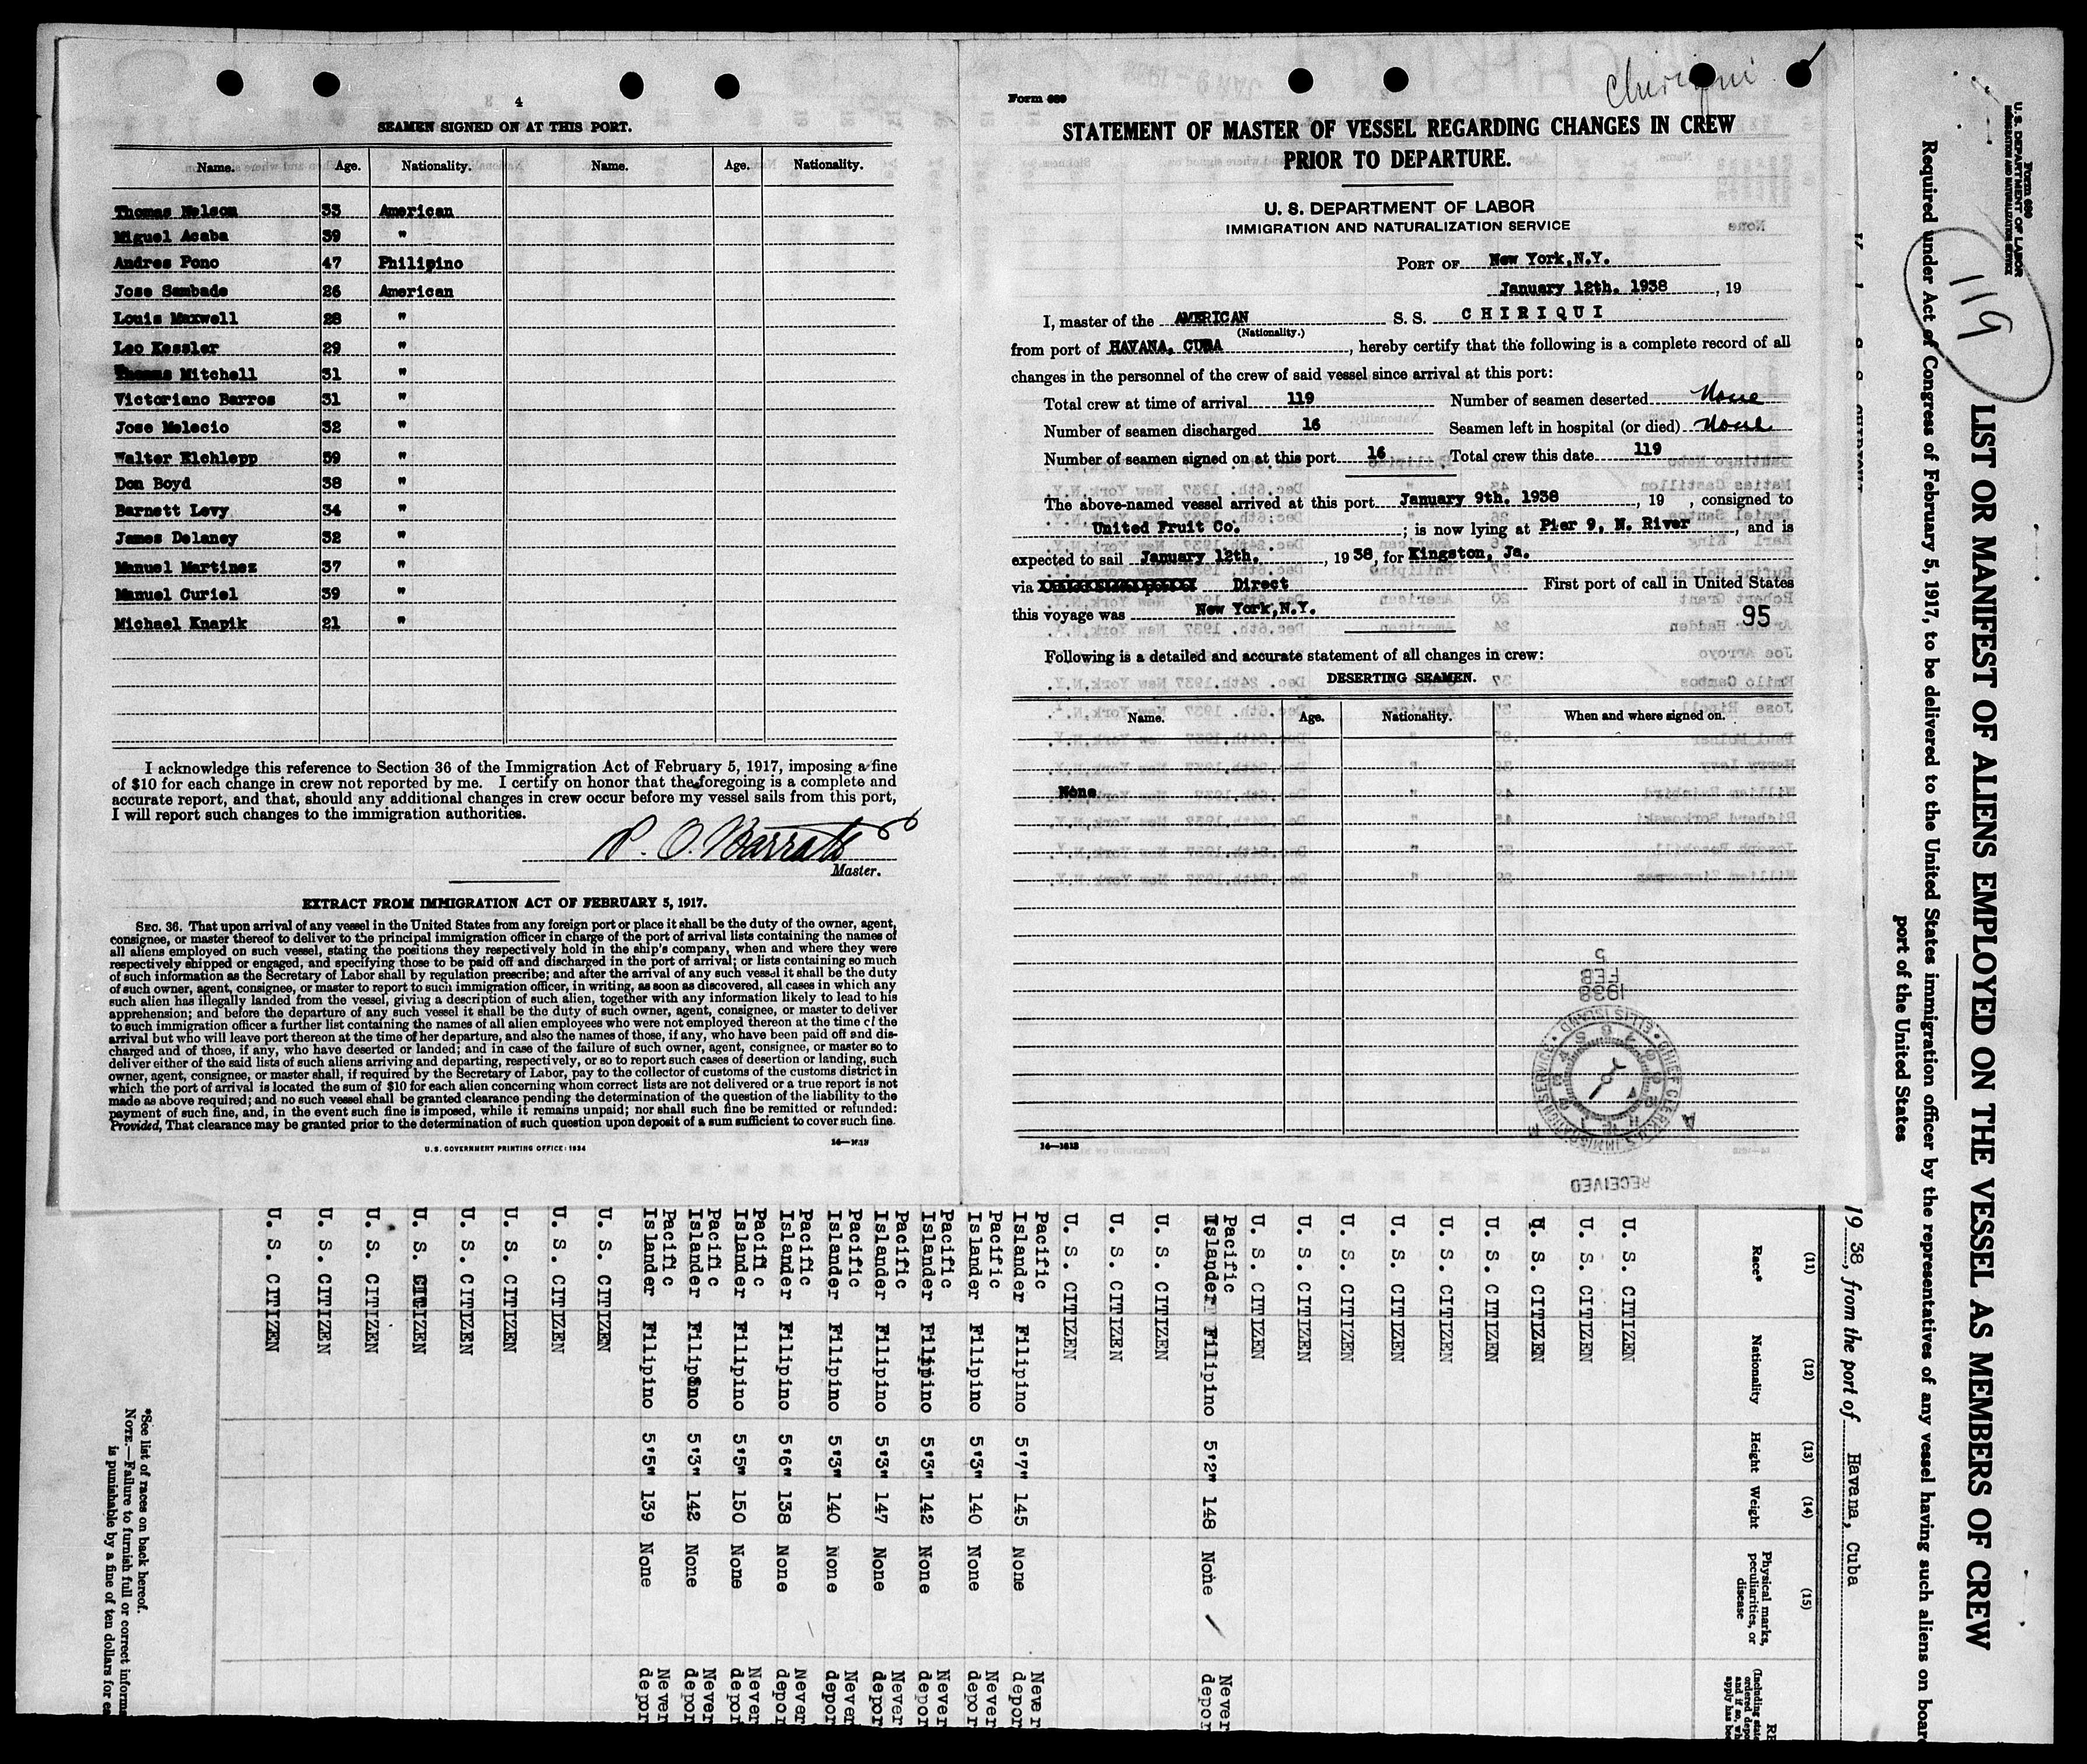 4
SEAMEN SIGNED ON AT THIS PORT.
Name. Age. Nationality. Name. Age. Nationality.
Thomas Nelson 33 American
Miguel Acaba 39 "
Andres Pono 47 Philipino
Jose Sambade 26 American
Louis Maxwell 28 "
Leo Kessler 29 "
Thomas Mitchell 31 "
Victoriano Barros 31 "
Jose Melecio 32 "
Walter Elchlepp 39 "
Don Boyd 38 "
Barnett Levy 34 "
James Delaney 32 "
Manuel Martinez 37 "
Manuel Curiel 39 "
Michael Knapik 21 "
I acknowledge this reference to Section 36 of the Immigration Act of February 5, 1917, imposing a fine
of $10 for each change in crew not reported by me. I certify on honor that the foregoing is a complete and
accurate report, and that, should any additional changes in crew occur before my vessel sails from this port,
I will report such changes to the immigration authorities.
Master.
EXTRACT FROM IMMIGRATION ACT OF FEBRUARY 5, 1917.
SEC. 36. That upon arrival of any vessel in the United States from any foreign port or place it shall be the duty of the owner, agent,
consignee, or master thereof to deliver to the principal immigration officer in charge of the port of arrival lists containing the names of
all aliens employed on such vessel, stating the positions they respectively hold in the ship's company, when and where they were
respectively shipped or engaged, and specifying those to be paid off and discharged in the port of arrival; or lists containing so much
of such information as the Secretary of Labor shall by regulation prescribe; and after the arrival of any such vessel it shall be the duty
of such owner, agent, consignee, or master to report to such immigration officer, in writing, as soon as discovered, all cases in which any
such alien has illegally landed from the vessel, giving a description of such alien, together with any information likely to lead to his
apprehension; and before the departure of any such vessel it shall be the duty of such owner, agent, consignee, or master to deliver
to such immigration officer a further list containing the names of all alien employees who were not employed thereon at the time of the
arrival but who will leave port thereon at the time of her departure, and also the names of those, if any, who have been paid off and dis-
charged and of those, if any, who have deserted or landed; and in case of the failure of such owner, agent, consignee, or master so to
deliver either of the said lists of such aliens arriving and departing, respectively, or so to report such cases of desertion or landing, such
owner, agent, consignee, or master shall, if required by the Secretary of Labor, pay to the collector of customs of the customs district in
which the port of arrival is located the sum of $10 for each alien concerning whom correct lists are not delivered or a true report is not
made as above required; and no such vessel shall be granted clearance pending the determination of the question of the liability to the
payment of such fine, and, in the event such fine is imposed, while it remains unpaid; nor shall such fine be remitted or refunded:
Provided, That clearance may be granted prior to the determination of such question upon deposit of a sum sufficient to cover such fine.
U.S. GOVERNMENT PRINTING OFFICE: 1934
Chiriqui
Form 689
STATEMENT OF MASTER OF VESSEL REGARDING CHANGES IN CREW
PRIOR TO DEPARTURE.
U. S. DEPARTMENT OF LABOR
IMMIGRATION AND NATURALIZATION SERVICE
PORT OF New York, N.Y.
January 12th. 1938, 19
I, master of the AMERICAN S. S. CHIRIQUI
(Nationality.)
from port of HAVANA, CUBA, hereby certify that the following is a complete record of all
changes in the personnel of the crew of said vessel since arrival at this port:
Total crew at time of arrival 119 Number of seamen deserted None
Number of seamen discharged 16 Seamen left in hospital (or died) None
Number of seamen signed on at this port 16 Total crew this date 119
The above-named vessel arrived at this port January 9th. 1938, 19 , consigned to
United Fruit Co. ; is now lying at Pier 9, N. River, and is
expected to sail January 12th., 1938, for Kingston, Ja.
via Direct First port of call in United States
this voyage was New York, N.Y. 95
Following is a detailed and accurate statement of all changes in crew:
DESERTING SEAMEN.
Name. Age. Nationality. When and where signed on.
None
1938
FEB
5
RECEIVED
14—1618
Form 689
U. S. DEPARTMENT OF LABOR
IMMIGRATION AND NATURALIZATION SERVICE
119
LIST OR MANIFEST OF ALIENS EMPLOYED ON THE VESSEL AS MEMBERS OF CREW
Required under Act of Congress of February 5, 1917, to be delivered to the United States immigration officer by the representatives of any vessel having such aliens on board
port of the United States
1938, from the port of Havana, Cuba
(11) (12) (13) (14) (15)
Race* Nationality Height Weight Physical marks, peculiarities, or disease
U. S. CITIZEN
U. S. CITIZEN
U. S. CITIZEN
U. S. CITIZEN
U. S. CITIZEN
U. S. CITIZEN
U. S. CITIZEN
U. S. CITIZEN
U. S. CITIZEN
Pacific Islander Filipino 5'2" 148 None Never depor
U. S. CITIZEN
U. S. CITIZEN
U. S. CITIZEN
Pacific Islander Filipino 5'7" 145 None Never depor
Pacific Islander Filipino 5'3" 140 None Never depor
Pacific Islander Filipino 5'3" 142 None Never depor
Pacific Islander Filipino 5'3" 147 None Never depor
Pacific Islander Filipino 5'3" 140 None Never depor
Pacific Islander Filipino 5'6" 138 None Never depor
Pacific Islander Filipino 5'5" 150 None Never depor
Pacific Islander Filipino 5'3" 142 None Never depor
Pacific Islander Filipino 5'5" 139 None Never depor
U. S. CITIZEN
U. S. CITIZEN
U. S. CITIZEN
U. S. CITIZEN
U. S. CITIZEN
U. S. CITIZEN
U. S. CITIZEN
U. S. CITIZEN
*See list of races on back hereof.
NOTE.—Failure to furnish full or correct informa
is punishable by a fine of ten dollars for ea